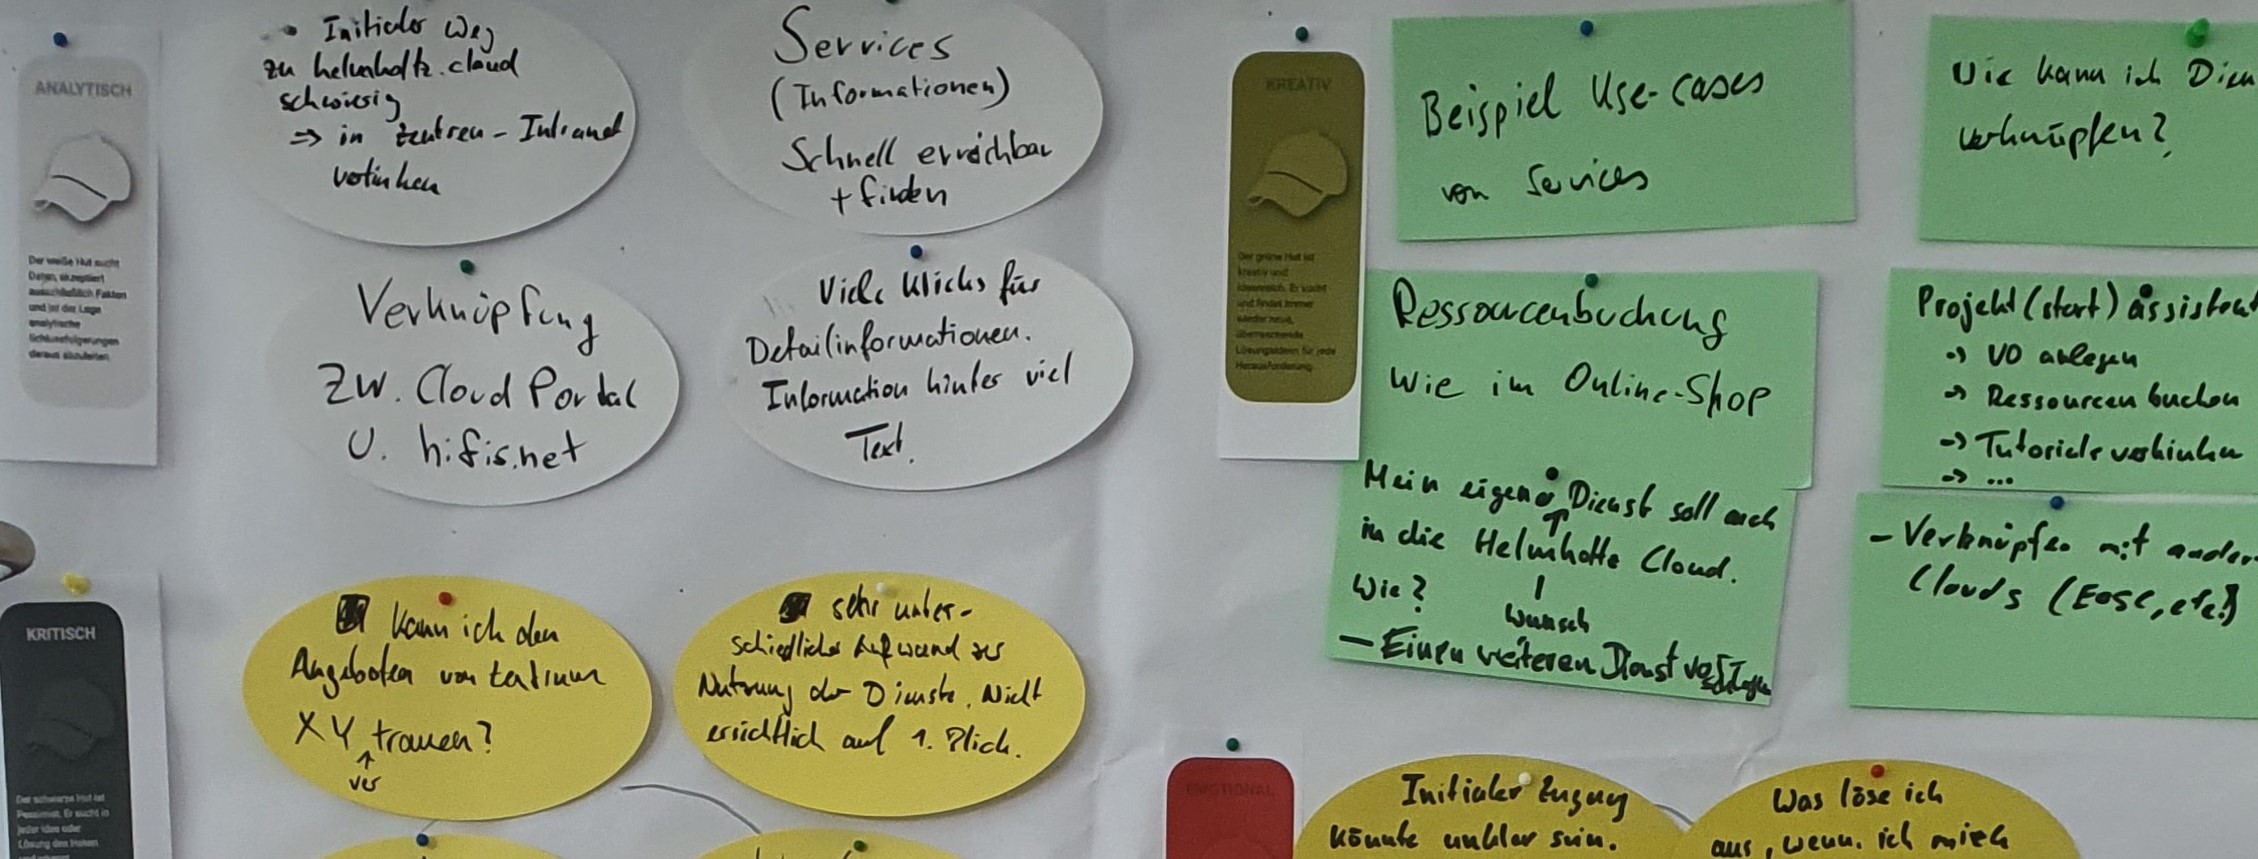 ANALYTISCH
Der weiße Hut sucht
Daten, akzeptiert
ausschließlich Fakten
und ist der Lage
analytische
Schlussfolgerungen
daraus abzuleiten
Initialer Weg
zu helmholtz.cloud
schwierig
=> in Zentren-Intranet
verlinken
Services
(Informationen)
Schnell erreichbar
+ finden
Verknüpfung
zw. Cloud Portal
u. hifis.net
Viele Klicks für
Detailinformationen.
Information hinter viel
Text.
KREATIV
Der grüne Hut ist
kreativ und
ideenreich. Er sucht
und findet immer
wieder neue,
überraschende
Lösungsideen für jede
Herausforderung
Beispiel Use-cases
von Services
Wie kann ich Dien
verknüpfen?
Ressourcenbuchung
wie im Online-Shop
Projekt(start)assistent
-> VO anlegen
-> Ressourcen buchen
-> Tutorials verlinken
-> ...
Mein eigener Dienst soll auch
in die Helmholtz Cloud.
Wie?
Wunsch
- Einen weiteren Dienst vorschlagen
- Verknüpfen mit anderen
Clouds (EOSC, etc.)
KRITISCH
Der schwarze Hut ist
Pessimist. Er sucht in
jeder Idee oder
Lösung den Haken
Kann ich den
Angeboten von Zentrum
XY trauen?
ver
sehr unter-
schiedlicher Aufwand zur
Nutzung der Dienste. Nicht
ersichtlich auf 1. Blick.
EMOTIONAL
Initialer Zugang
könnte unklar sein.
Was löse ich
aus, wenn ich mich